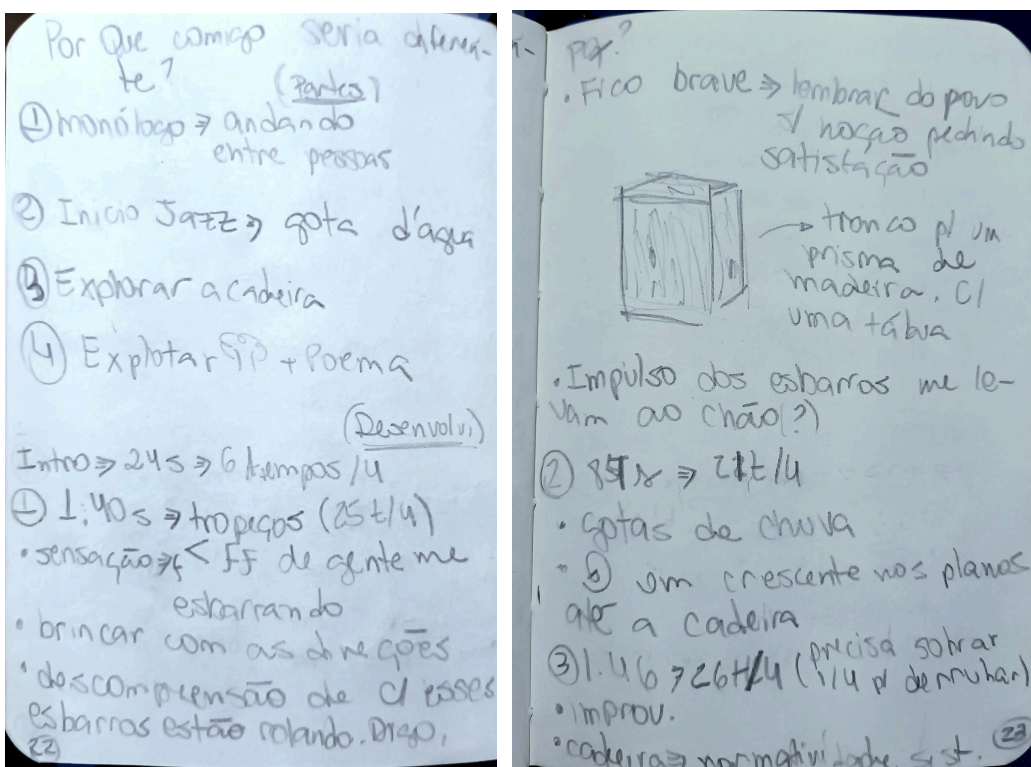 Por Que comigo seria diferen-
te?
(Partes)
① monólogo => andando
entre pessoas
② Início Jazz => gota d'água
③ Explorar a cadeira
④ Explorar + Poema
(Desenvolvi)
Intro => 24s => 6 tempos/4
① 1:40s => tropeços (25t/4)
• sensação => < FF de gente me
esbarrando
• brincar com as direções
• descompreensão de c/ esses
esbarros estão rolando. Digo,
22
por?
• Fico brave => lembrar do povo
s/ noção pedindo
satisfação
→ tronco p/ um
prisma de
madeira. C/
uma tábua
• Impulso dos esbarros me le-
vam ao chão(?)
② => 21t/4
• gotas de chuva
• um crescente nos planos
até a cadeira
③ 1:46 => 26t/4 (precisa sobrar
1/4 p/ derrubar)
• improv.
• cadeira => normatividade, sist.
23